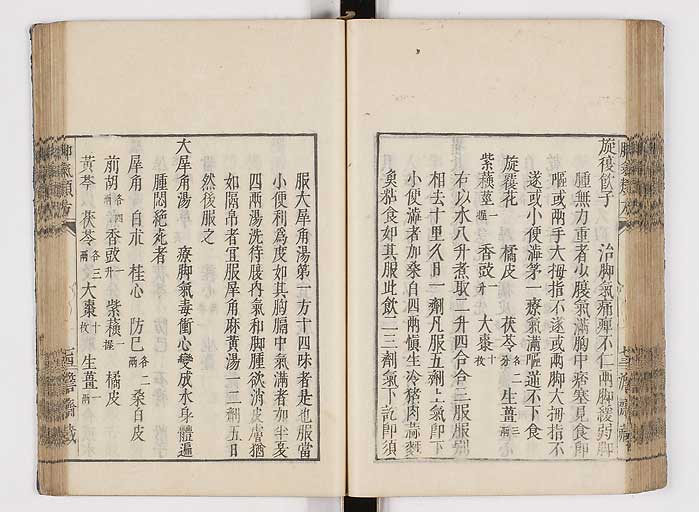 旋復飲子　治脚氣痛痺不仁兩脚緩弱脚
腫無力重者少腹氣滿胸中痞塞見食卽
嘔或兩手大拇指不遂或兩脚大拇指不
遂或小便澁第一療氣滿嘔逆不下食
旋覆花　橘皮　茯苓各二分　生薑三
紫蘓莖一握　香豉一升　大棗十枚
右以水八升煮取二升四合分三服服別
相去十里久日一劑凡服五劑上氣卽下
小便澁者加桑白四兩愼生冷猪肉蒜麵
魚粘食如其服此飲二三劑氣下訖卽須
脚氣類方
服大犀角湯第一方十四味者是也服當
小便利爲度如其胸膈中氣滿者加半夏
四兩湯洗待腹内氣和脚腫欲消皮膚猶
如隔帛者宜服犀角麻黄湯一二劑五日
然後服之
大犀角湯　療脚氣毒衝心變成水身體遍
腫悶絶死者
犀角　白朮　桂心　防已各二兩　桑白皮
前胡各四兩　香豉一升　紫蘓一握　橘皮
黄芩　茯苓各三兩　大棗十枚　生薑一兩
脚氣類方